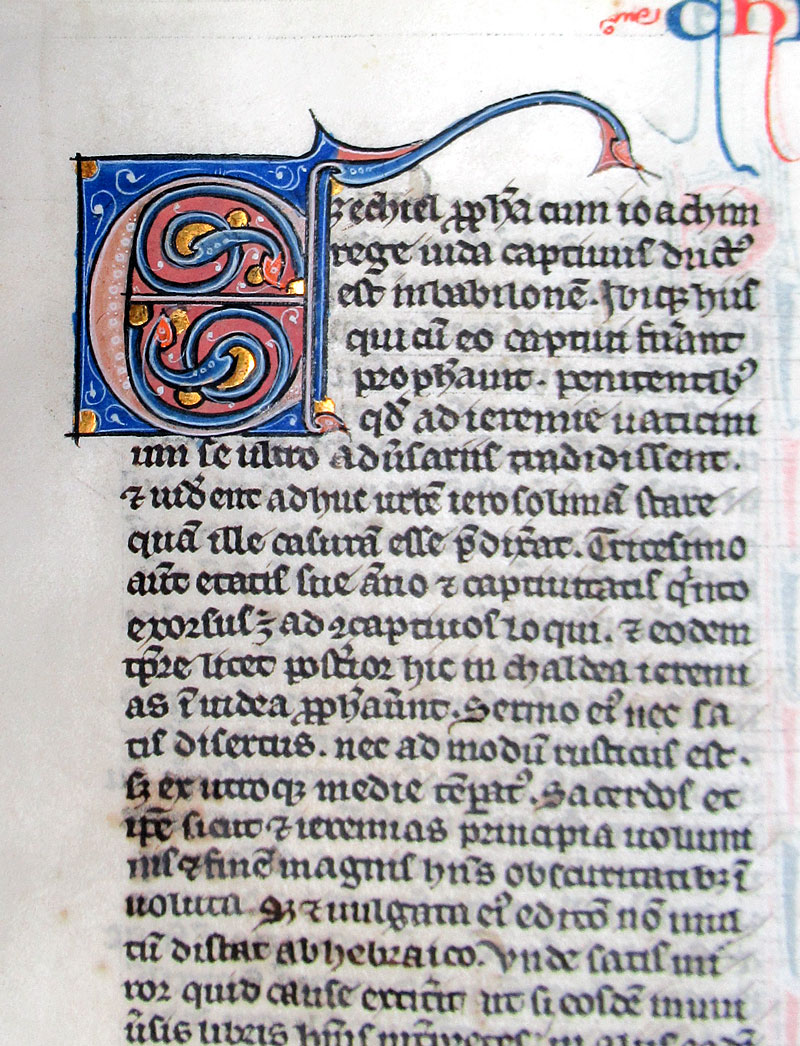 Ezechiel ꝓph̄a cum ioachim
rege iuda captiuus duct᷒
est inbabilonē. Ibiqꝫ hiis
qui cū eo captiui fuерant
prophauit. penitentibꝰ
qd̄ ad ieremie uaticini
um se ultro adūsariis tradidissent.
⁊ uid̄ent adhuc urbē ierosolimā stare
quā ille casurā esse p̄dix̄at. Tricesimo
aūt etatis sue āno ⁊ captiuitatis qͥnto
exorsusꝫ ad ↄcaptiuos loqui. ⁊ eodem
tp̄re licet post̄ior hic in chaldea ieremi
as ī iudea ꝓph̄auūnt. Sermo eiꝰ nec sa
tis disertus. nec admodū rusticus est.
sꝫ ex utroqꝫ medie tēꝑatꝰ. Sacerdos et
ip̄e sicut ⁊ ieremias principia uolumi
nis ⁊ finē magnis hn̄s obscuritatibꝫ ī
uoluta. Sꝫ ⁊ uulgata eiꝰ editō nō mul
tū distat ab hebraico. Vnde satis mi
ror quid cause extit̄it ut si eosdē in uni
ūsis libris